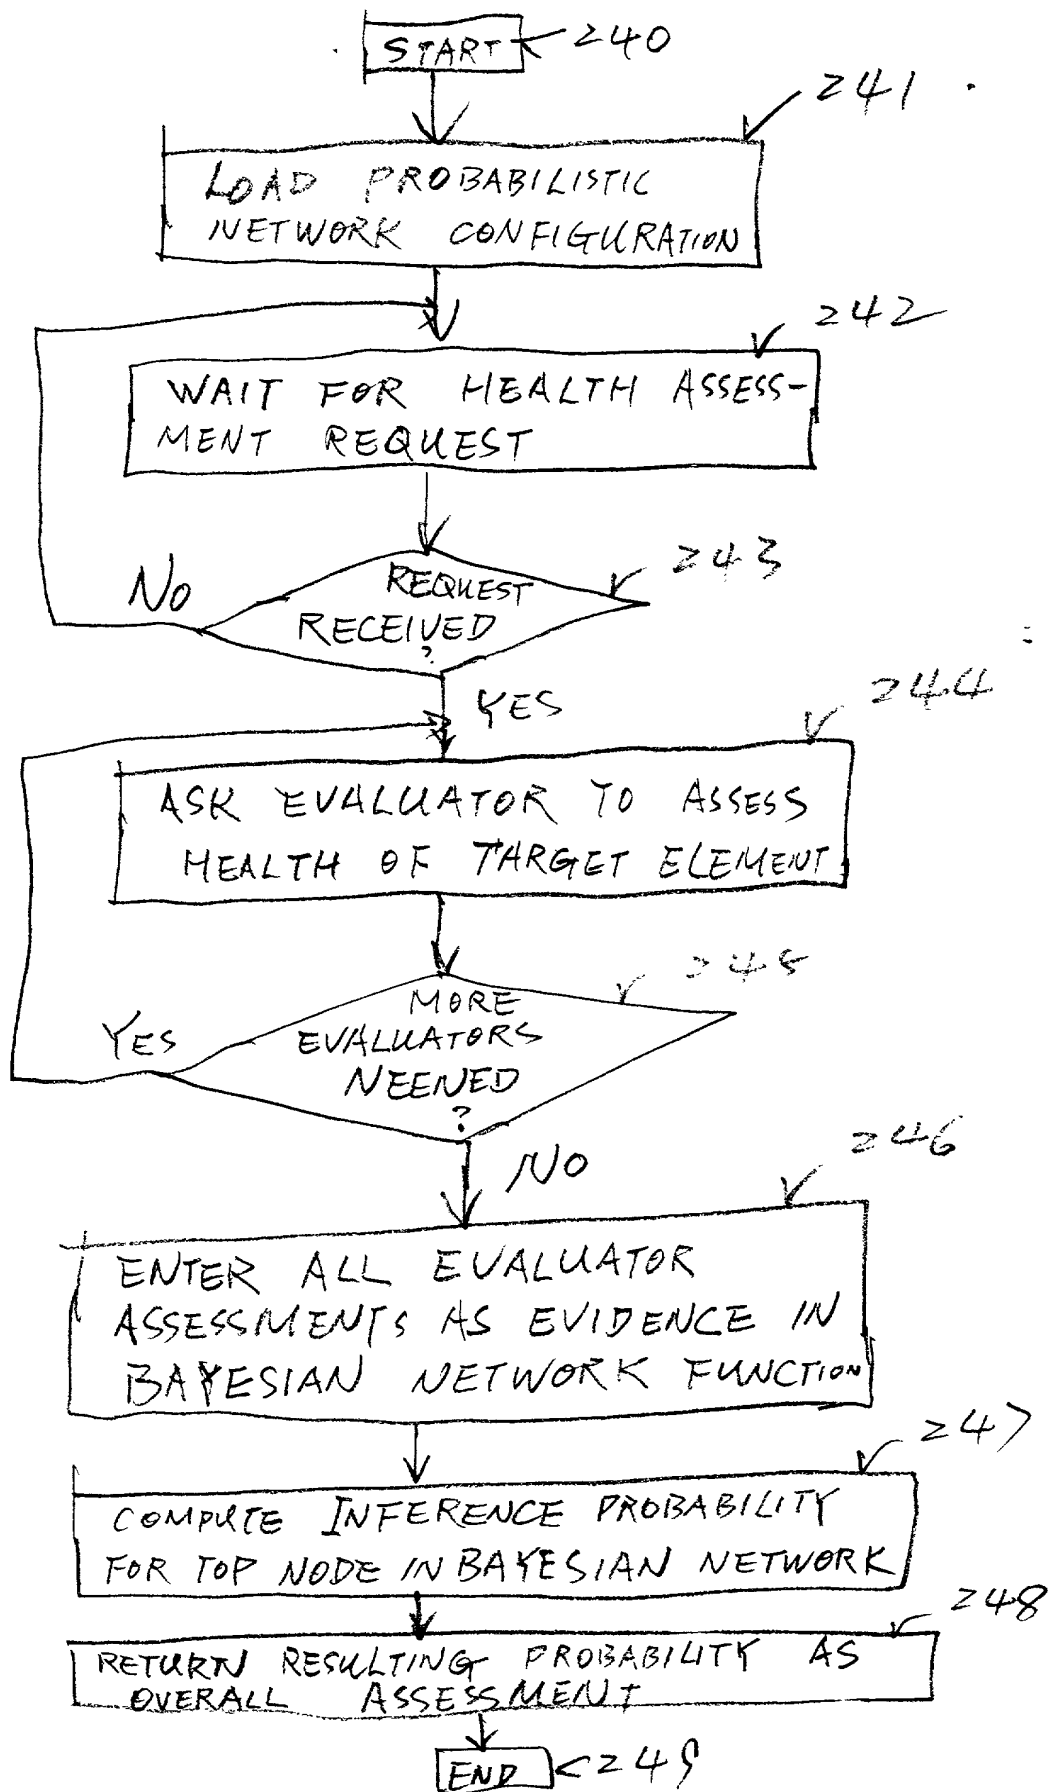 START 240
241
LOAD PROBABILISTIC
NETWORK CONFIGURATION
242
WAIT FOR HEALTH ASSESS-
MENT REQUEST
243
NO
REQUEST
RECEIVED
?
YES
244
ASK EVALUATOR TO ASSESS
HEALTH OF TARGET ELEMENT
245
MORE
YES
EVALUATORS
NEENED
?
NO
246
ENTER ALL EVALUATOR
ASSESSMENTS AS EVIDENCE IN
BAYESIAN NETWORK FUNCTION
247
COMPUTE INFERENCE PROBABILITY
FOR TOP NODE IN BAYESIAN NETWORK
248
RETURN RESULTING PROBABILITY AS
OVERALL ASSESSMENT
END 249